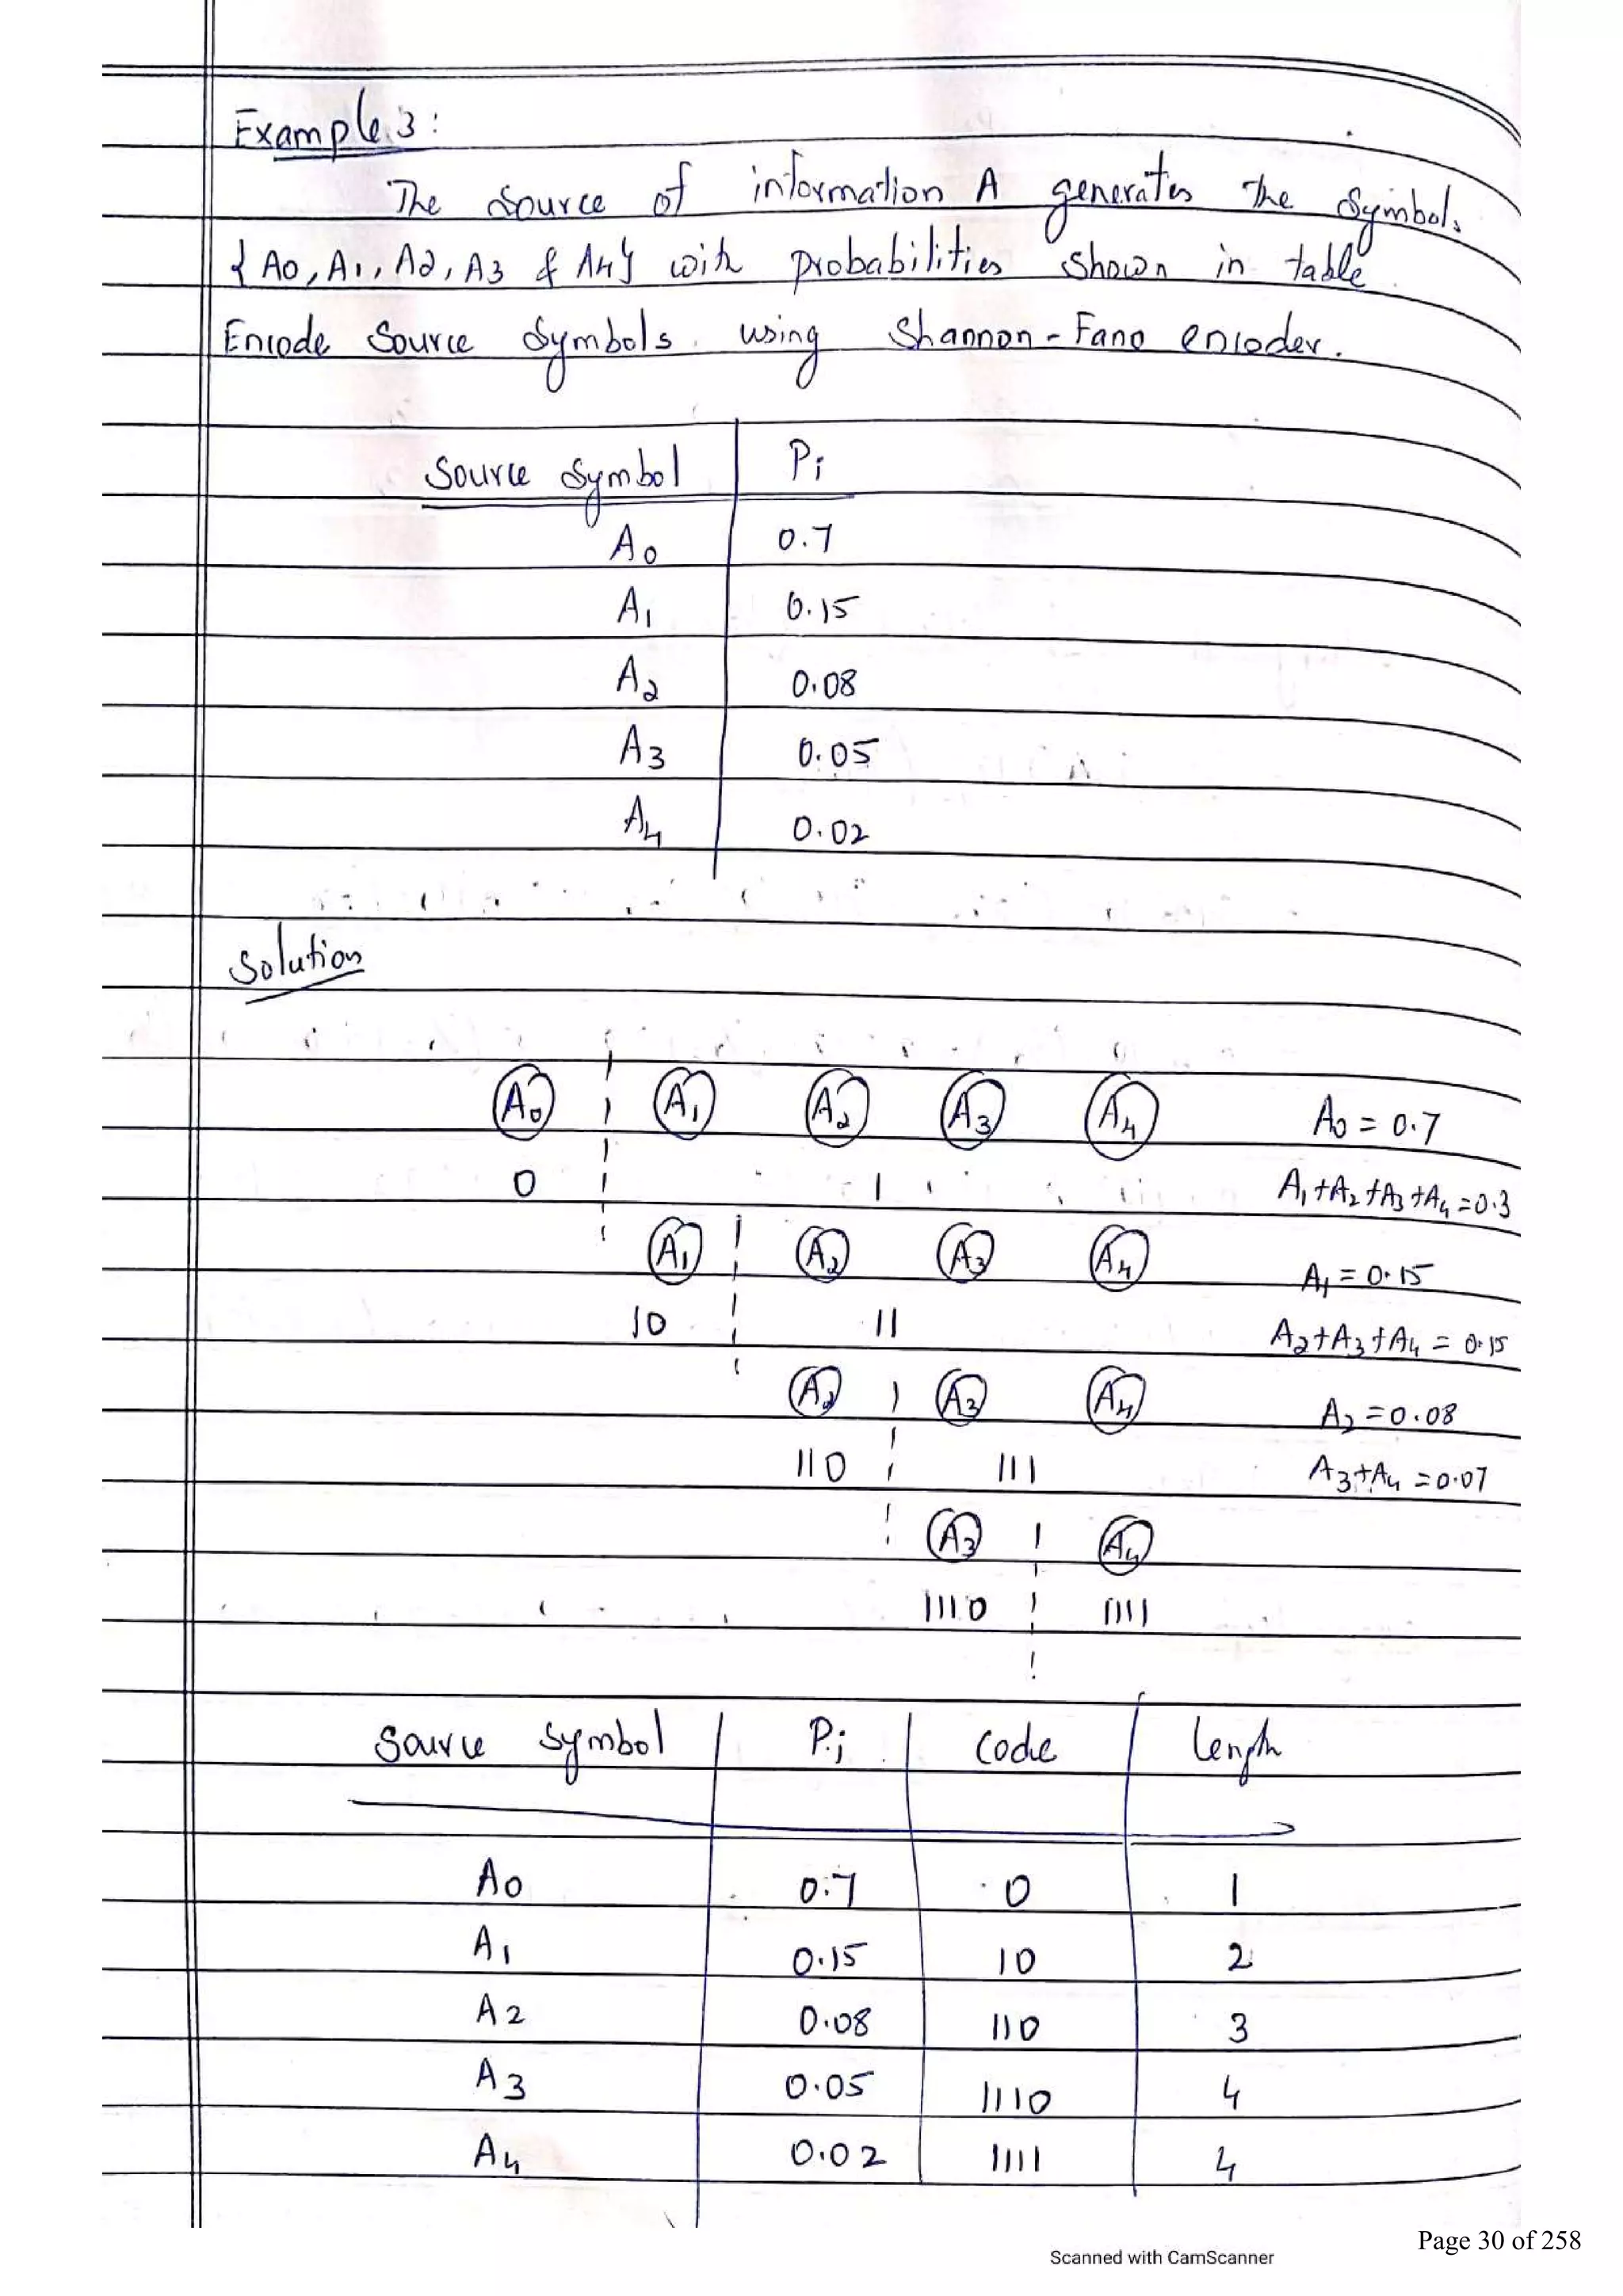 Example 3:
The source of information A generates the symbols
{A0, A1, A2, A3 & A4} with probabilities shown in table.
Encode source symbols using Shannon-Fano encoder.
Source symbol Pi
A0 0.7
A1 0.15
A2 0.08
A3 0.05
A4 0.02
Solution
A0 A1 A2 A3 A4 A0 = 0.7
0 1 A1+A2+A3+A4 = 0.3
A1 A2 A3 A4 A1 = 0.15
10 11 A2+A3+A4 = 0.15
A2 A3 A4 A2 = 0.08
110 111 A3+A4 = 0.07
A3 A4
1110 1111
Source symbol Pi Code Length
A0 0.7 0 1
A1 0.15 10 2
A2 0.08 110 3
A3 0.05 1110 4
A4 0.02 1111 4
Page 30 of 258
Scanned with CamScanner